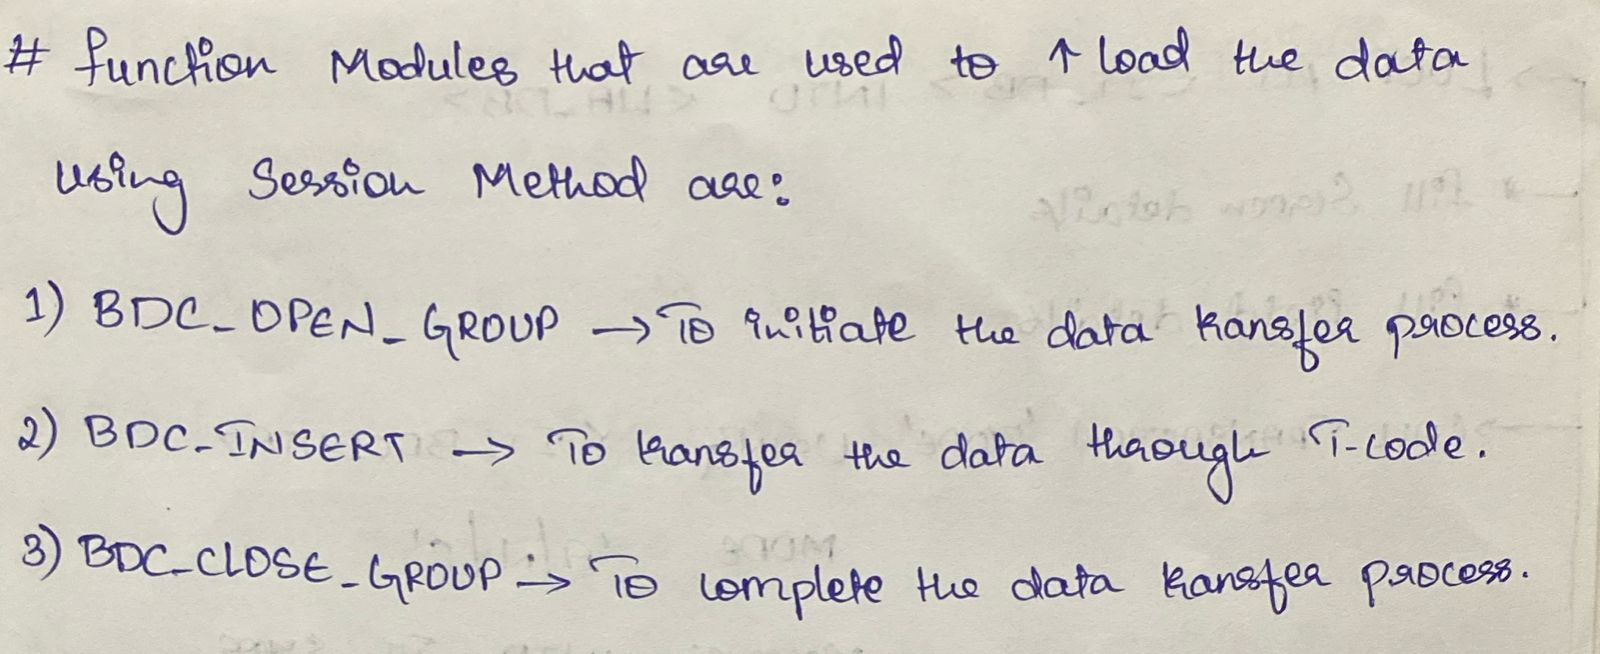 # Function Modules that are used to ↑ load the data
using Session Method are:
1) BDC_OPEN_GROUP → To initiate the data transfer process.
2) BDC_INSERT → To transfer the data through T-code.
3) BDC_CLOSE_GROUP → To complete the data transfer process.